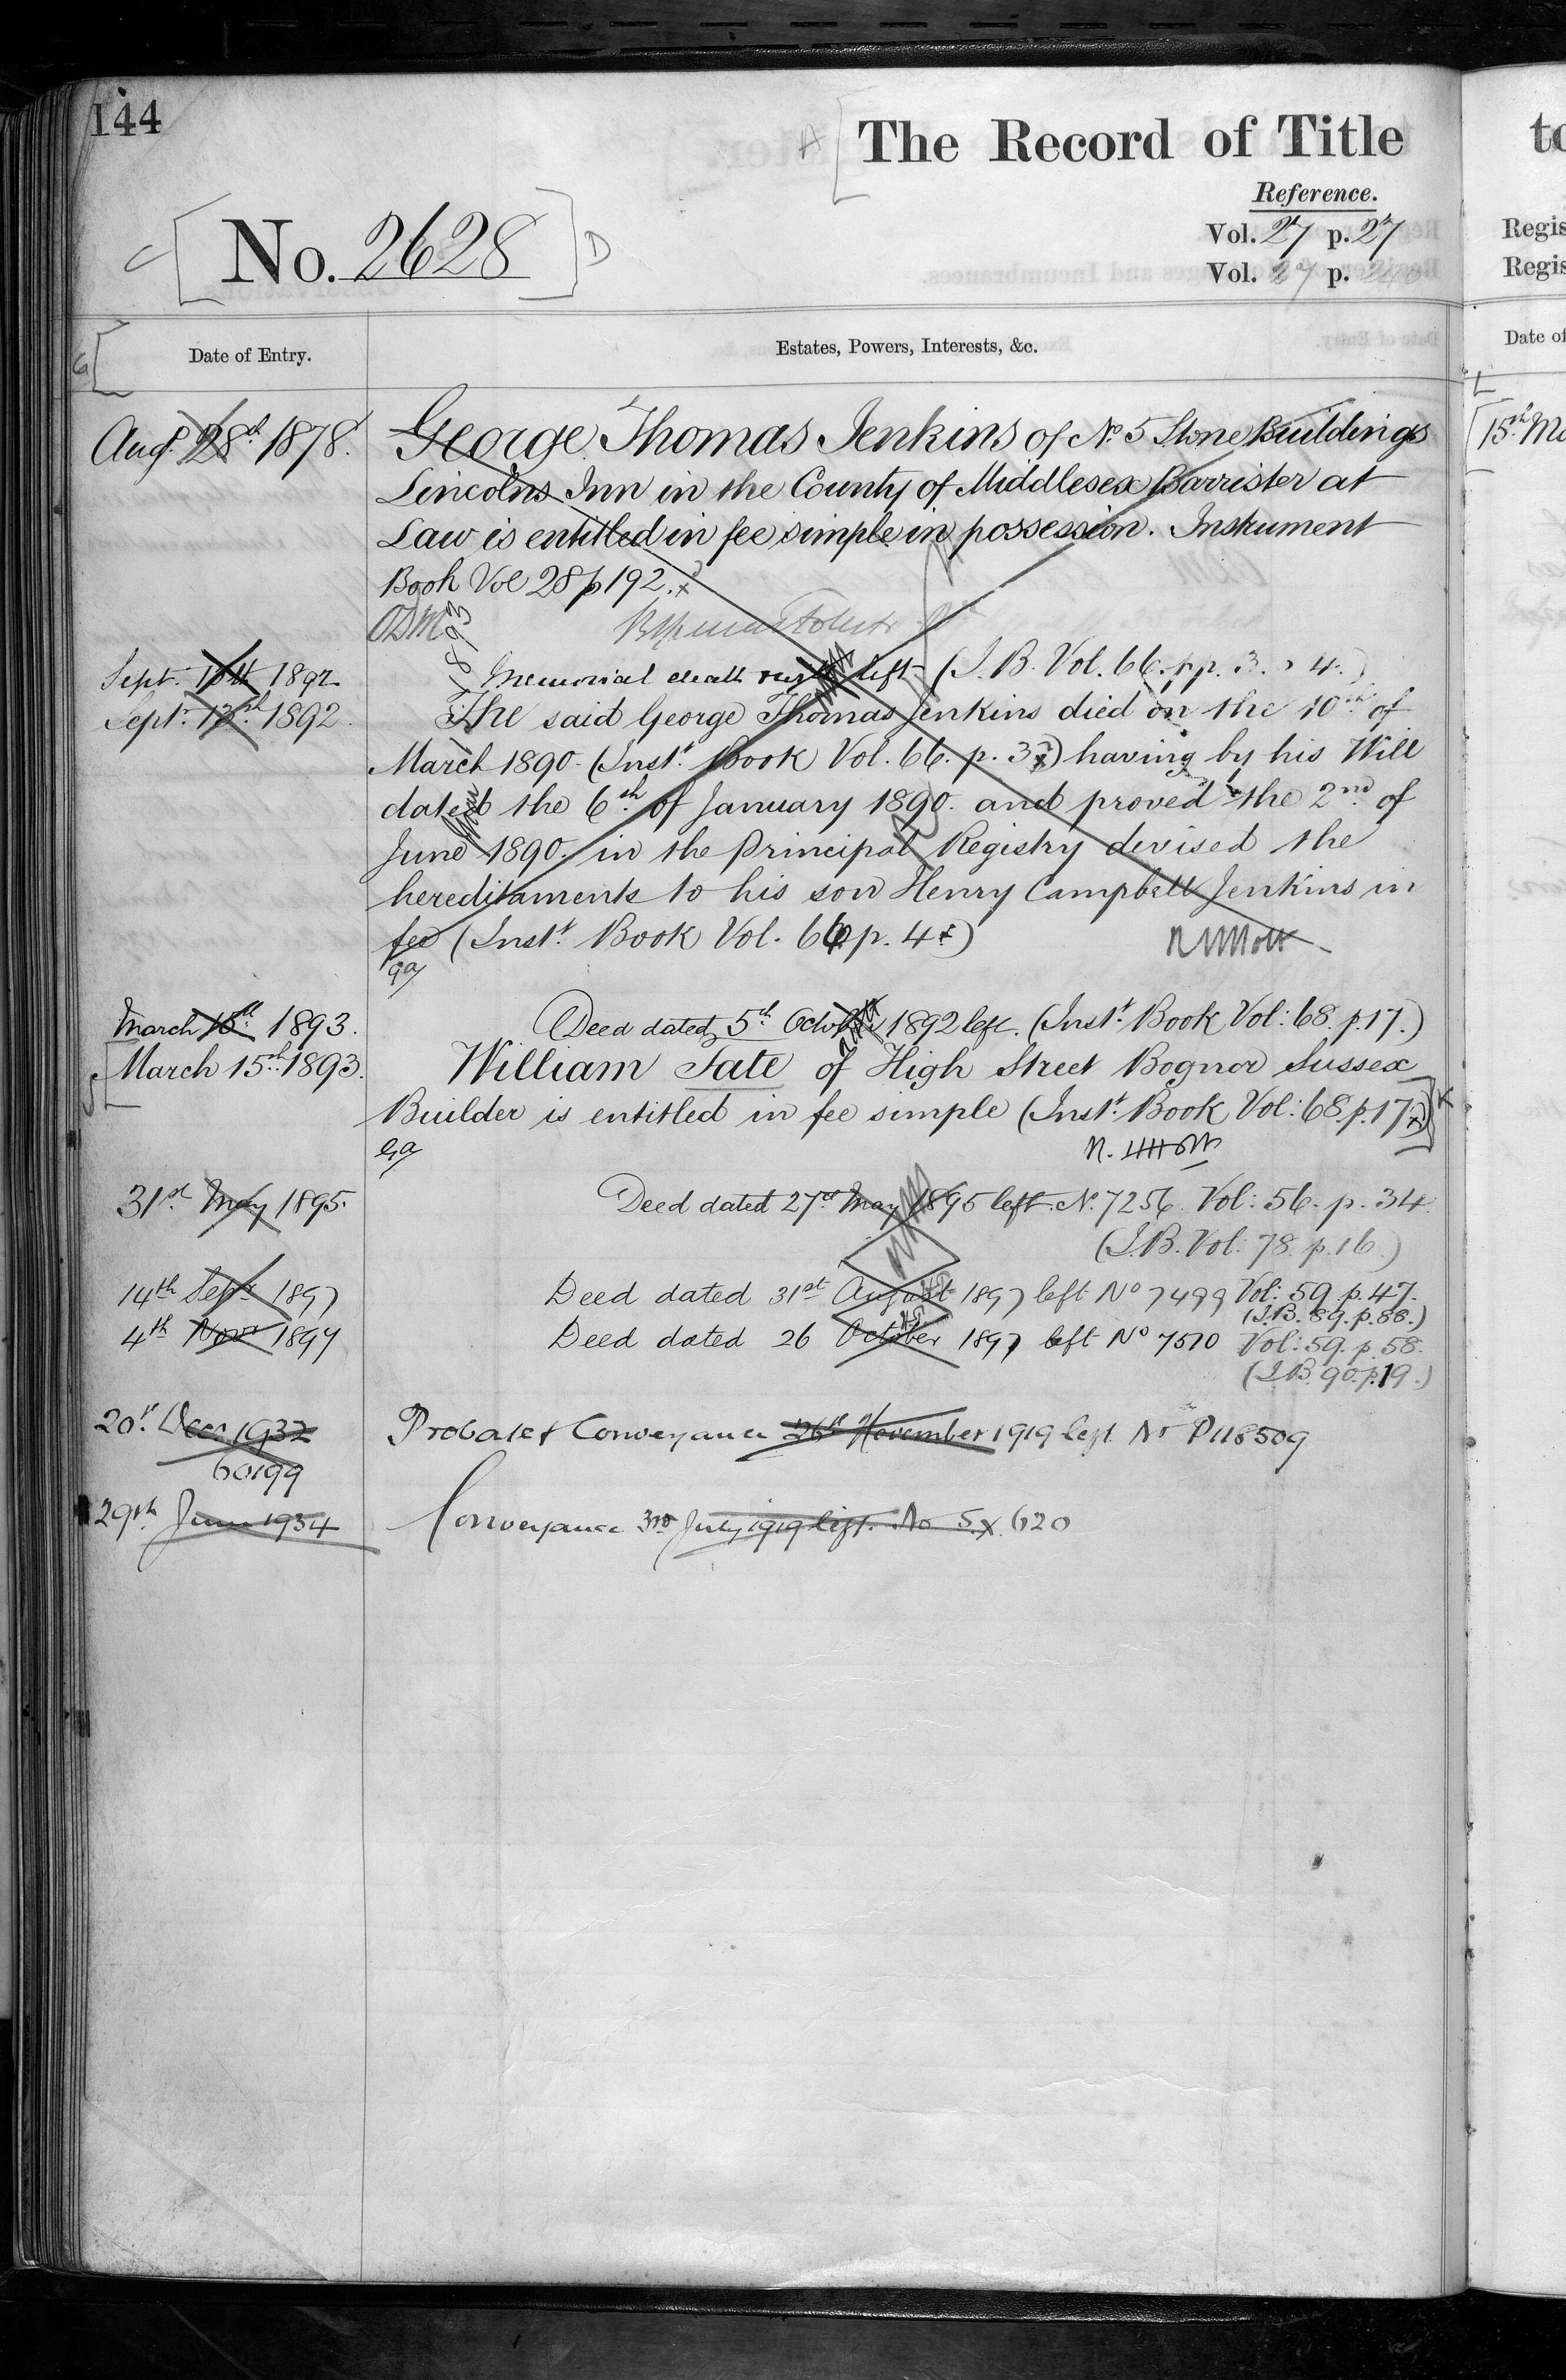 144
A [ The Record of Title
Reference.
Vol. 27 p. 27
Vol. 27 p.
C [ No. 2628 ] D
G [ Date of Entry.
Estates, Powers, Interests, &c.
Augt. 28th 1878. George Thomas Jenkins of No. 5 Stone Buildings
Lincolns Inn in the County of Middlesex Barrister at
Law is entitled in fee simple in possession. Instrument
Book Vol 28 p 192. x
Sept. 10th 1892 Memorial death left (I.B. Vol. 66. pp. 3. 4.)
Sept. 13th 1892. The said George Thomas Jenkins died on the 10th of
March 1890. (Inst. Book Vol. 66. p. 3 x) having by his Will
dated the 6th of January 1890. and proved the 2nd of
June 1890. in the Principal Registry devised the
hereditaments to his son Henry Campbell Jenkins in
fee (Inst. Book Vol. 66 p. 4 x)
March 15th 1893. Deed dated 5th October 1892 left. (Inst. Book Vol: 68. p. 17.)
March 15th 1893. William Tate of High Street Bognor Sussex
Builder is entitled in fee simple (Inst. Book Vol: 68. p. 17 x) ] K
31st May 1895. Deed dated 27th May 1895 left. No. 7256. Vol: 56. p. 34.
(I.B. Vol: 78. p. 16.)
14th Sept 1897 Deed dated 31st August 1897 left No 7499 Vol: 59 p. 47.
(I.B. 89. p. 88.)
4th Novr 1897 Deed dated 26 October 1897 left No 7510 Vol: 59. p. 58.
(I.B. 90. p. 19.)
20th Decr 1932 Probate & Conveyance 26th November 1919 left No P118509
60199
29th June 1934 Conveyance 3rd July 1919 left. No Sx 620
to
Regis
Regis
Date of
L
[ 15th Ma